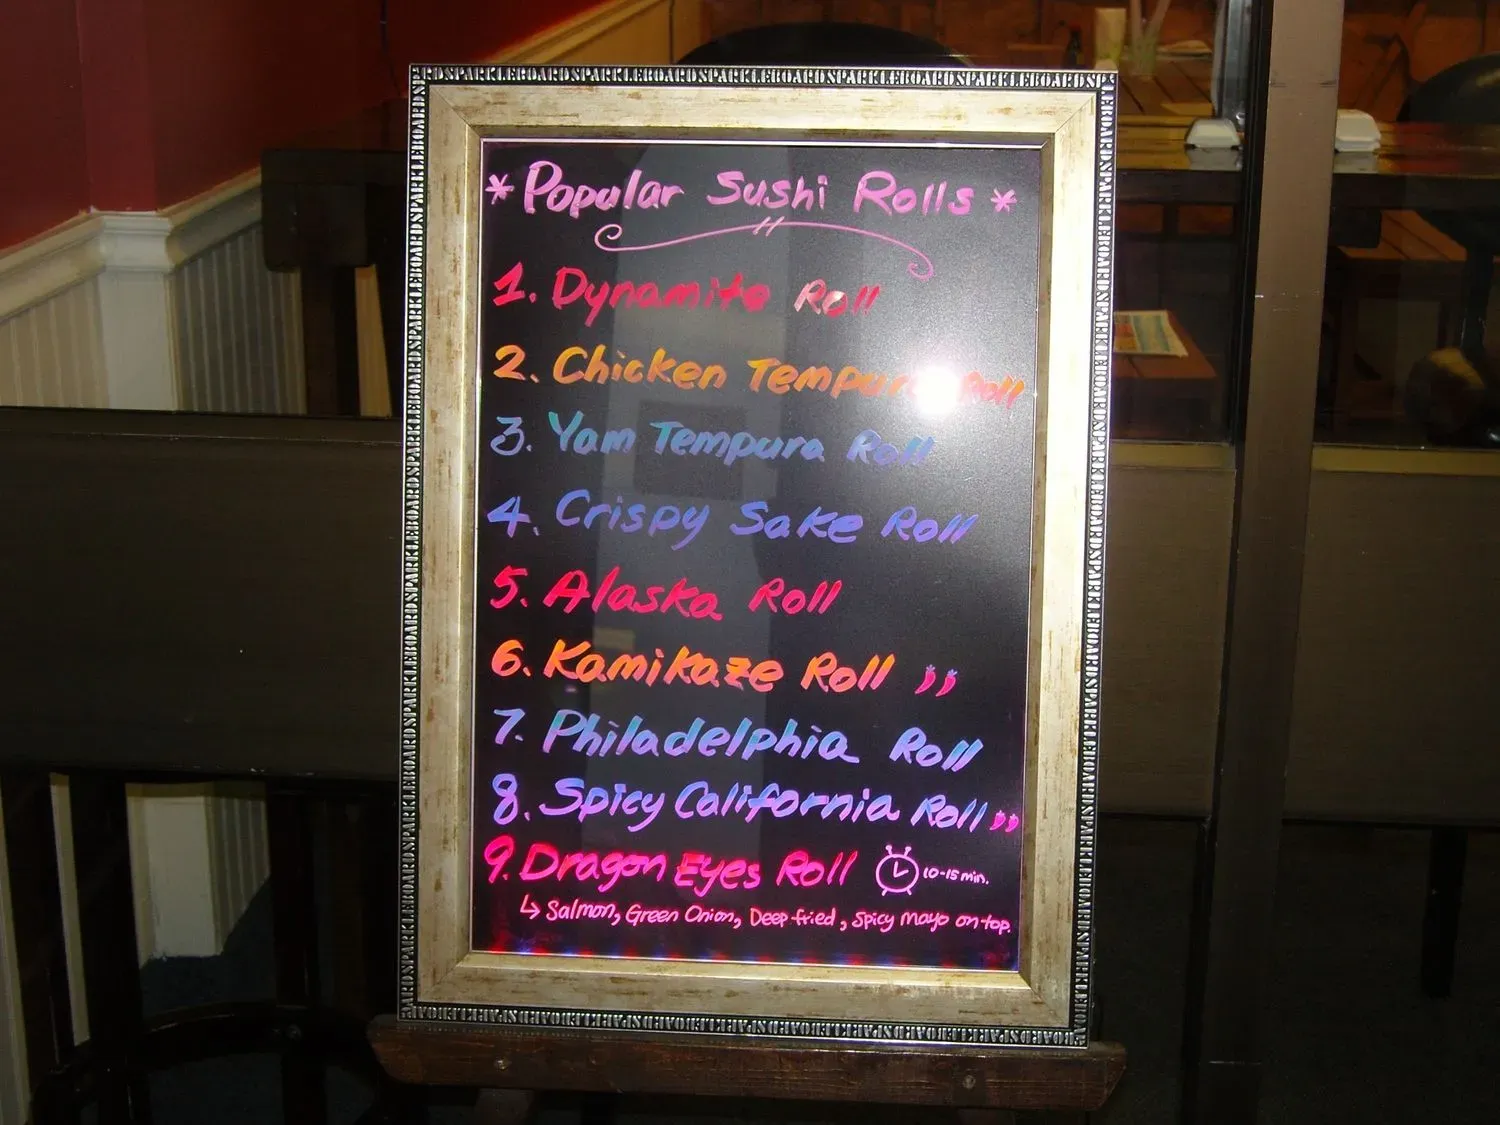 * Popular Sushi Rolls *
1. Dynamite Roll
2. Chicken Tempura Roll
3. Yam Tempura Roll
4. Crispy Sake Roll
5. Alaska Roll
6. Kamikaze Roll
7. Philadelphia Roll
8. Spicy California Roll
9. Dragon Eyes Roll 10-15 min.
↳ Salmon, Green Onion, Deep fried, Spicy mayo on top.
SPARKLEBOARDSPARKLEBOARDSPARKLEBOARDSPARKLEBOARDSPARKLEBOARD